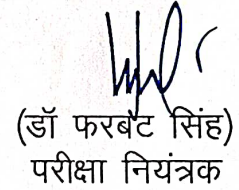 (डॉ फरबट सिंह)
परीक्षा नियंत्रक